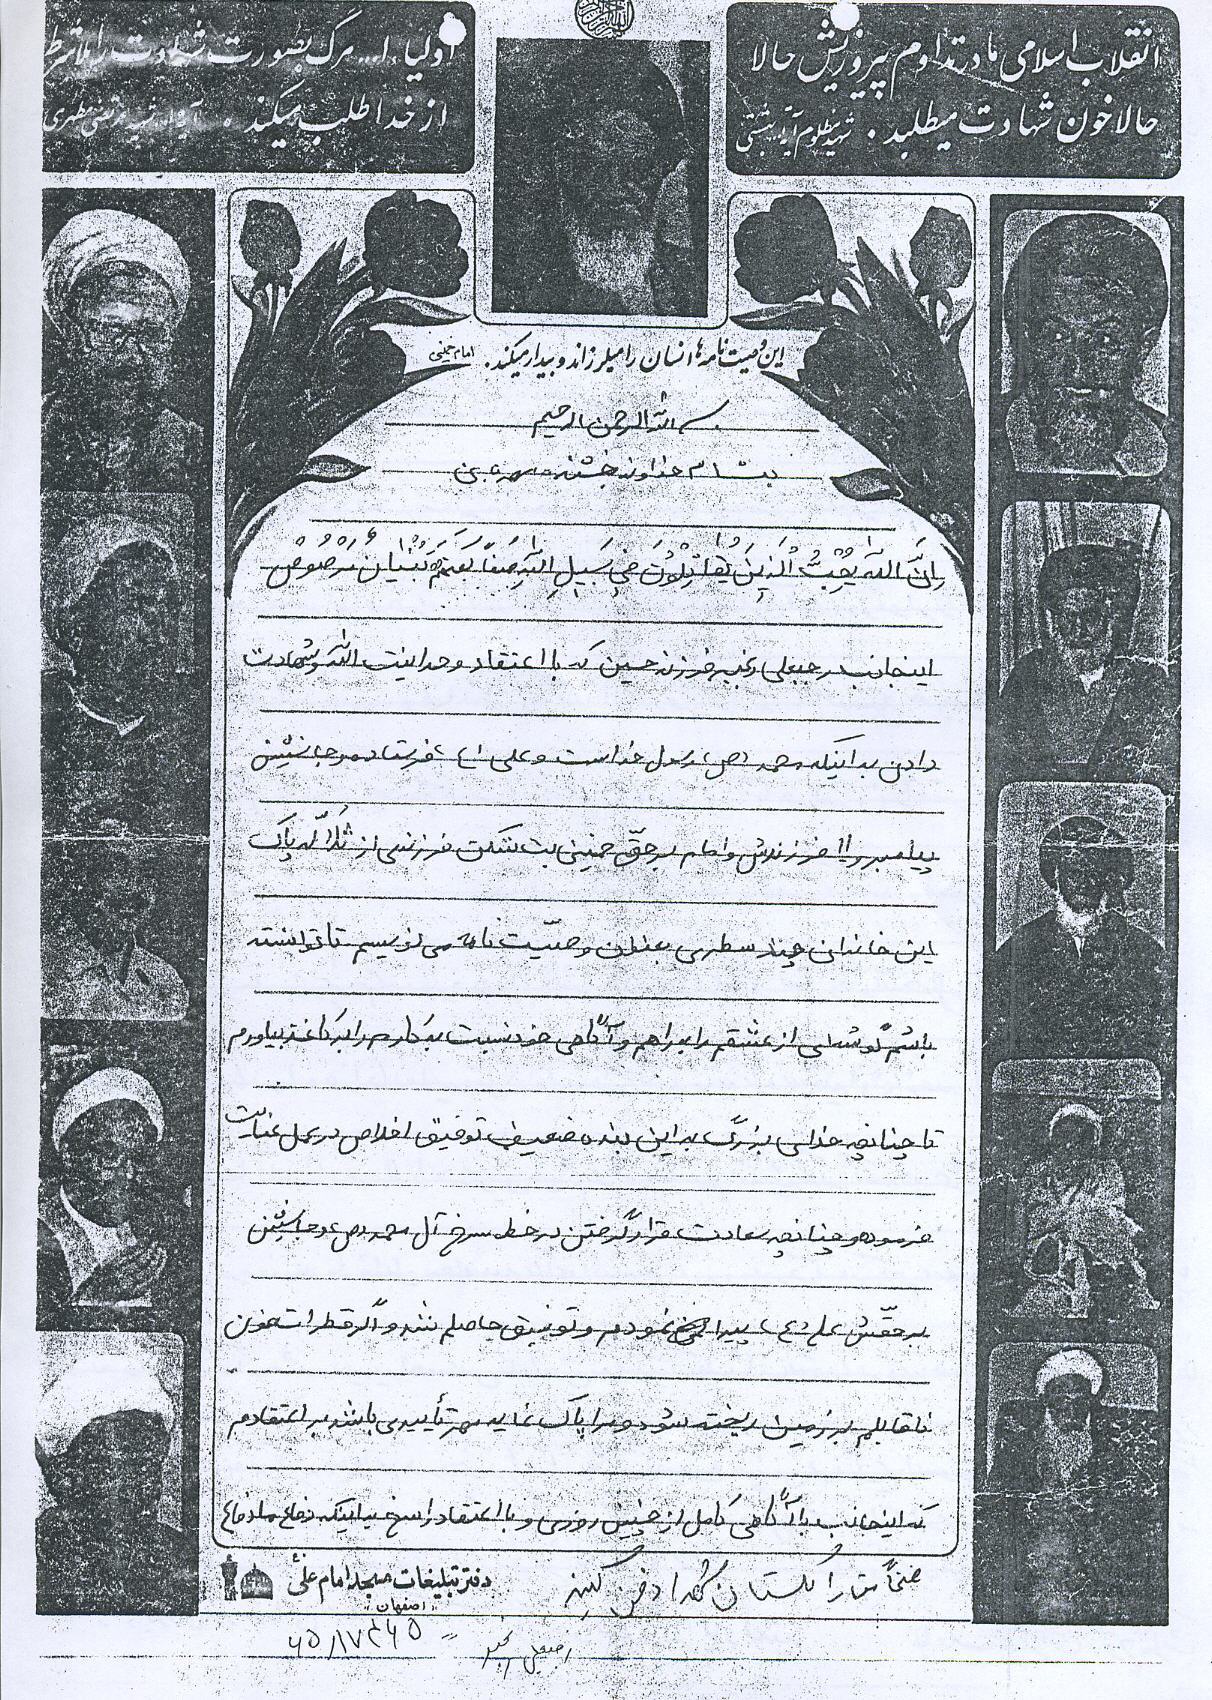 انقلاب اسلامی ما در تداوم پیروزیش حالا
حالا خون شهادت میطلبد . شهید مظلوم آیة... بهشتی
اولیاء ا... مرگ بصورت شهادت را
از خدا طلب میکنند . مرتضی مطهری
این وصیت نامه ها انسان را میلرزاند و بیدار میکند . امام خمینی
بسم الله الرحمن الرحیم
بنام خداوند بخشنده مهربان
اِنَّ اللهَ یُحِبُّ الَّذینَ یُقاتِلُونَ فی سَبیلِ اللهِ صَفّاً کَاَنَّهُم بُنیانٌ مَرصُوصٌ
اینجانب رجبعلی فرزند حسین که با اعتقاد وحدانیت الله و شهادت
دادن به اینکه محمد (ص) رسول خداست و علی (ع) فرستاده و جانشین
پیامبر و ۱۱ فرزندش و امام بر حق خمینی بت شکن فرزندی از سلاله پاک
این خاندان چند سطری بعنوان وصیّت نامه می نویسم تا توانسته
باشم گوشه ای از عشقم را به راهم و آگاهی خود نسبت به کارم را بر کاغذ بیاورم
تا چنانچه خدای بزرگ به این بنده ضعیف توفیق اخلاص در عمل عنایت
فرموده و چنانچه سعادت قرار گرفتن در خط سرخ آل محمد (ص) و جانشین
بر حقّش علی (ع) پیدا نمودم و توفیق حاصلم شد و اگر قطرات خون
ناقابلم بر زمین ریخته شود و مرا پاک نماید مهر تأییدی باشد بر اعتقادم
که اینجانب با آگاهی کامل از چنین روزی و با اعتقاد راسخ به اینکه دفاع ما دفاع
ضمناً مرا گلستان شهدا دفن کنید
دفتر تبلیغات مسجد امام علی
اصفهان